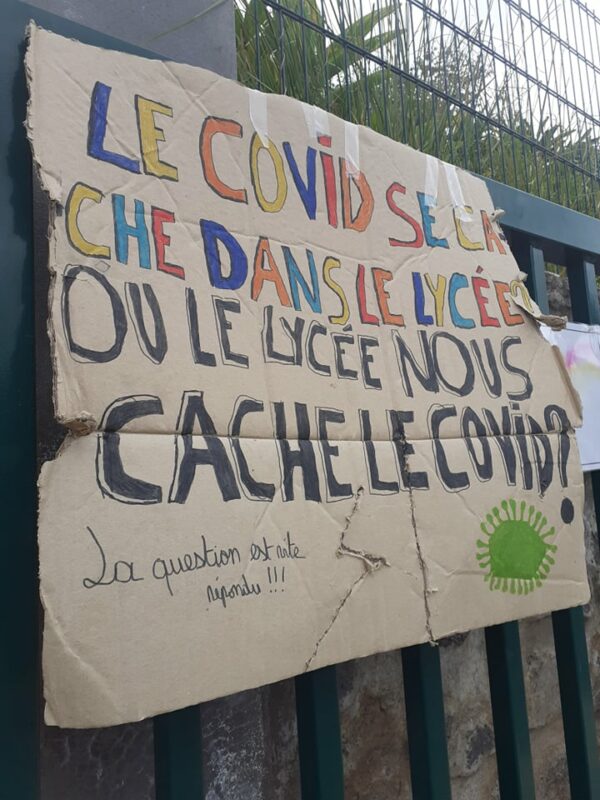 LE COVID SE CA
CHE DANS LE LYCÉE?
OU LE LYCÉE NOUS
CACHE LE COVID?
La question est vite
répondu !!!